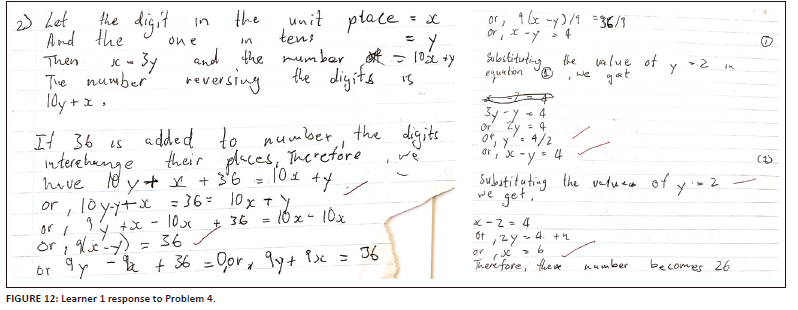 2) Let the digit in the unit place = x
And the one in tens = y
Then x = 3y and the number = 10x + y
The number reversing the digits is
10y + x.
If 36 is added to number, the digits
interchange their places, Therefore, we
have 10y + x + 36 = 10x + y
or, 10y-y+x = 36 = 10x + y
or, 9y + x - 10x + 36 = 10x - 10x
or, 9(x-y) = 36
or 9y - 9x + 36 = 0, or, 9y + 9x = 36
or, 9(x-y)/9 = 36/9
or, x - y = 4 (1)
Substituting the value of y = 2 in
equation (1), we get
x - 2 = 4
3y - y = 4
or 2y = 4
or, y = 4/2
or, x - y = 4 (2)
Substituting the values of y = 2
we get.
x - 2 = 4
or, 2y = 4 + 2
or, x = 6
Therefore, these number becomes 26
FIGURE 12: Learner 1 response to Problem 4.